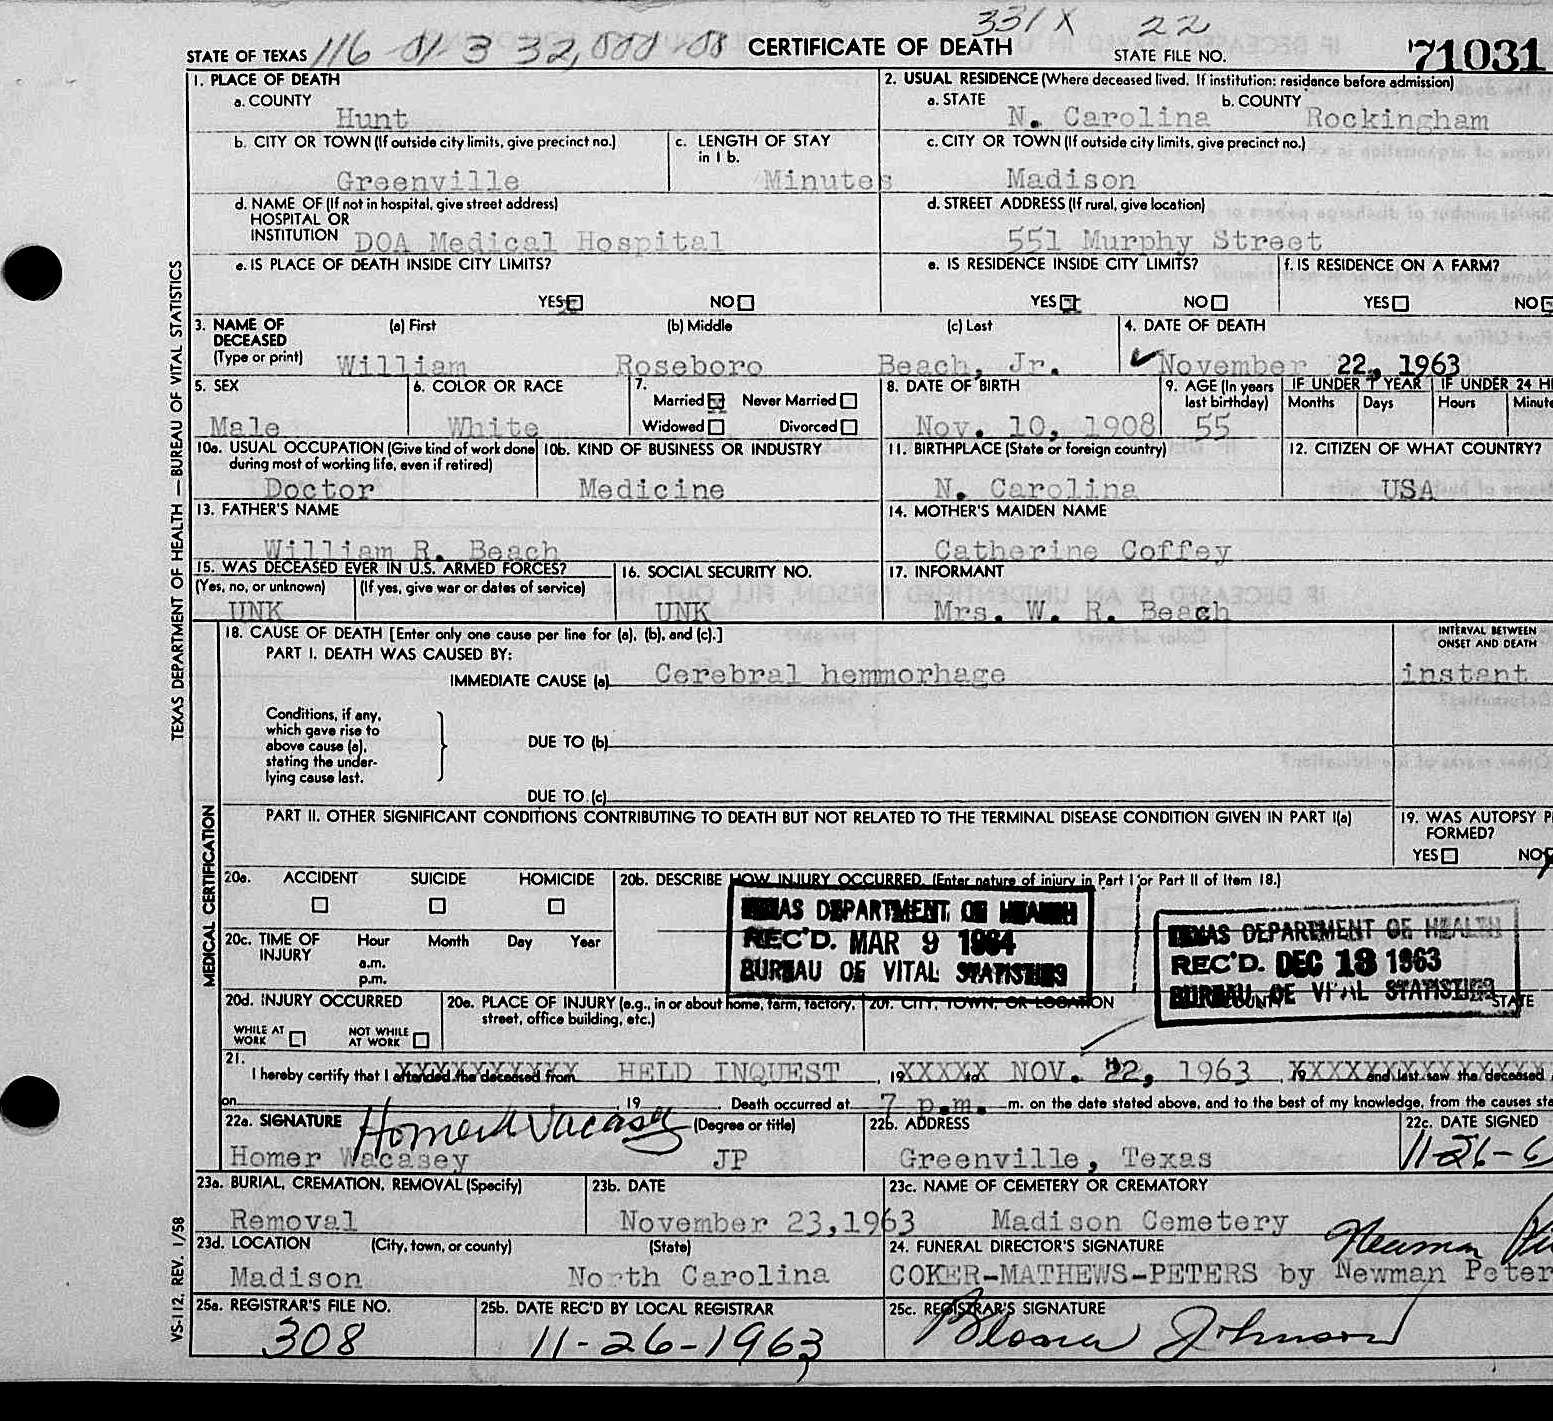 331X 22
STATE OF TEXAS 116 01 3 32,000 08 CERTIFICATE OF DEATH STATE FILE NO. 71031
1. PLACE OF DEATH
a. COUNTY
Hunt
2. USUAL RESIDENCE (Where deceased lived. If institution: residence before admission)
a. STATE b. COUNTY
N. Carolina Rockingham
b. CITY OR TOWN (If outside city limits, give precinct no.)
Greenville
c. LENGTH OF STAY
in 1 b.
Minutes
c. CITY OR TOWN (If outside city limits, give precinct no.)
Madison
d. NAME OF (If not in hospital, give street address)
HOSPITAL OR
INSTITUTION DOA Medical Hospital
d. STREET ADDRESS (If rural, give location)
551 Murphy Street
e. IS PLACE OF DEATH INSIDE CITY LIMITS?
YES X NO
e. IS RESIDENCE INSIDE CITY LIMITS?
YES X NO
f. IS RESIDENCE ON A FARM?
YES NO
3. NAME OF
DECEASED
(Type or print)
(a) First (b) Middle (c) Last
William Roseboro Beach, Jr.
4. DATE OF DEATH
November 22, 1963
5. SEX
Male
6. COLOR OR RACE
White
7.
Married X Never Married
Widowed Divorced
8. DATE OF BIRTH
Nov. 10, 1908
9. AGE (In years
last birthday)
55
IF UNDER 1 YEAR
Months Days
IF UNDER 24 H
Hours Minute
10a. USUAL OCCUPATION (Give kind of work done
during most of working life, even if retired)
Doctor
10b. KIND OF BUSINESS OR INDUSTRY
Medicine
11. BIRTHPLACE (State or foreign country)
N. Carolina
12. CITIZEN OF WHAT COUNTRY?
USA
13. FATHER'S NAME
William R. Beach
14. MOTHER'S MAIDEN NAME
Catherine Coffey
15. WAS DECEASED EVER IN U.S. ARMED FORCES?
(Yes, no, or unknown) (If yes, give war or dates of service)
UNK
16. SOCIAL SECURITY NO.
UNK
17. INFORMANT
Mrs. W. R. Beach
18. CAUSE OF DEATH [Enter only one cause per line for (a), (b), and (c).]
PART I. DEATH WAS CAUSED BY:
IMMEDIATE CAUSE (a) Cerebral hemmorhage
INTERVAL BETWEEN
ONSET AND DEATH
instant
Conditions, if any,
which gave rise to
above cause (a),
stating the under-
lying cause last.
DUE TO (b)
DUE TO (c)
PART II. OTHER SIGNIFICANT CONDITIONS CONTRIBUTING TO DEATH BUT NOT RELATED TO THE TERMINAL DISEASE CONDITION GIVEN IN PART I(a)
19. WAS AUTOPSY P
FORMED?
YES NO
20a. ACCIDENT SUICIDE HOMICIDE
20b. DESCRIBE HOW INJURY OCCURRED. (Enter nature of injury in Part I or Part II of Item 18.)
TEXAS DEPARTMENT OF HEALTH
REC'D. MAR 9 1964
BUREAU OF VITAL STATISTICS
TEXAS DEPARTMENT OF HEALTH
REC'D. DEC 13 1963
BUREAU OF VITAL STATISTICS
20c. TIME OF
INJURY
Hour Month Day Year
a.m.
p.m.
20d. INJURY OCCURRED
WHILE AT
WORK
NOT WHILE
AT WORK
20e. PLACE OF INJURY (e.g., in or about home, farm, factory,
street, office building, etc.)
20f. CITY, TOWN, OR LOCATION COUNTY STATE
21.
I hereby certify that I attended the deceased from HELD INQUEST , 19XXXXX to NOV. 22, 1963 , 19 and last saw the deceased
on , 19 . Death occurred at 7 p.m. m. on the date stated above, and to the best of my knowledge, from the causes sta
22a. SIGNATURE Homer Wacasey (Degree or title)
Homer Wacasey JP
22b. ADDRESS
Greenville, Texas
22c. DATE SIGNED
11-26-6
23a. BURIAL, CREMATION, REMOVAL (Specify)
Removal
23b. DATE
November 23, 1963
23c. NAME OF CEMETERY OR CREMATORY
Madison Cemetery
23d. LOCATION (City, town, or county) (State)
Madison North Carolina
24. FUNERAL DIRECTOR'S SIGNATURE Newman
COKER-MATHEWS-PETERS by Newman Peter
25a. REGISTRAR'S FILE NO.
308
25b. DATE REC'D BY LOCAL REGISTRAR
11-26-1963
25c. REGISTRAR'S SIGNATURE
Johnson
TEXAS DEPARTMENT OF HEALTH — BUREAU OF VITAL STATISTICS
MEDICAL CERTIFICATION
VS-112, REV. 1/58